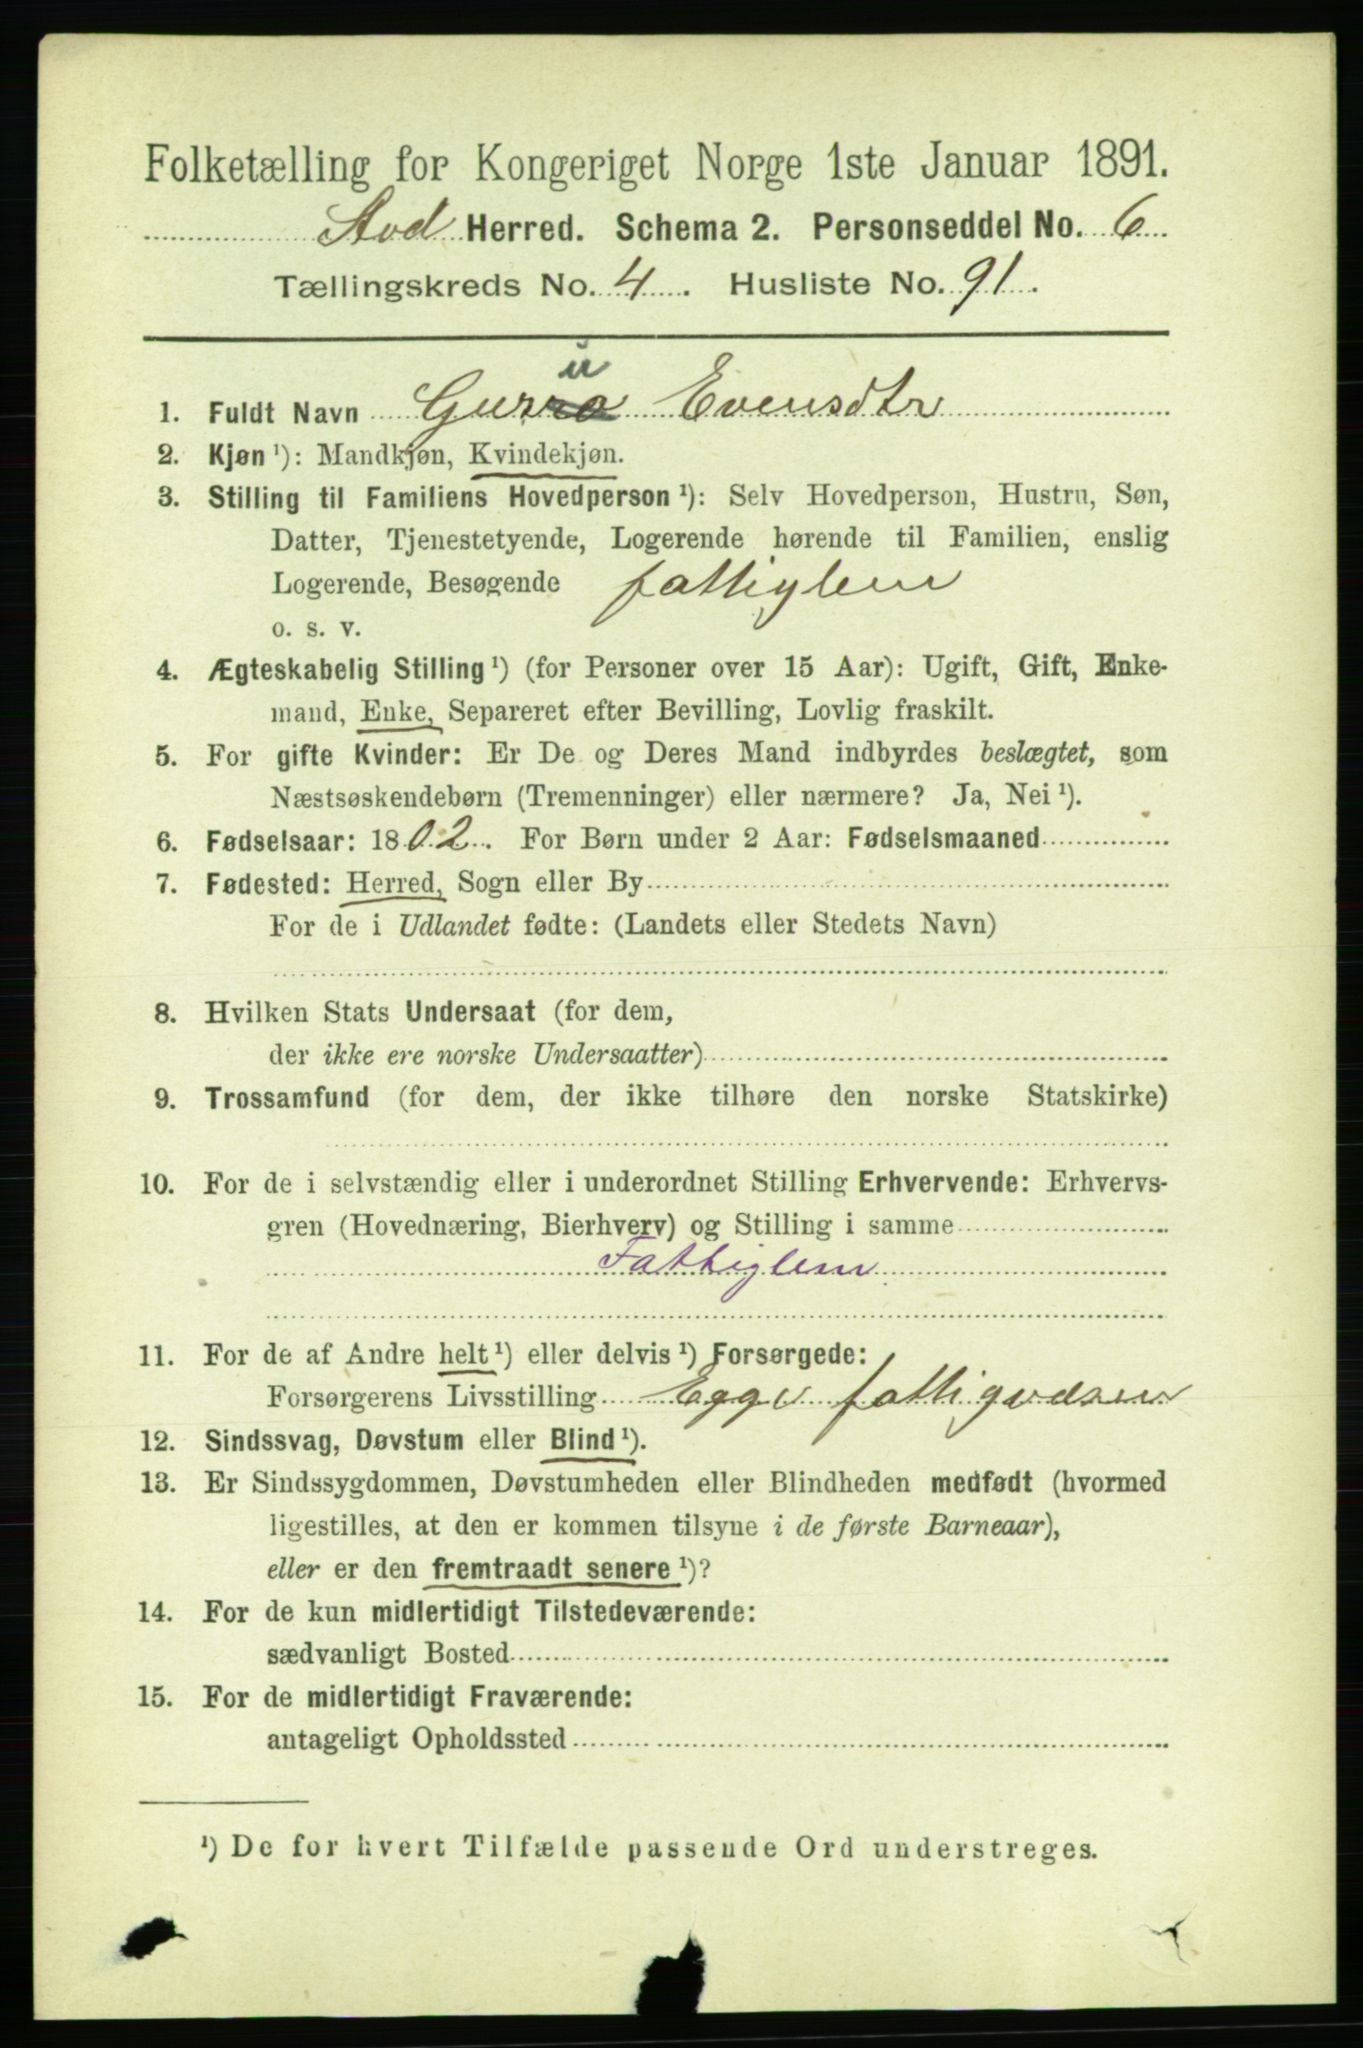 Folketælling for Kongeriget Norge 1ste Januar 1891.
Stod Herred. Schema 2. Personseddel No. 6
Tællingskreds No. 4. Husliste No. 91.
u
1. Fuldt Navn Gurro Evensdtr
2. Kjøn ¹): Mandkjøn, Kvindekjøn.
3. Stilling til Familiens Hovedperson ¹): Selv Hovedperson, Hustru, Søn,
Datter, Tjenestetyende, Logerende hørende til Familien, enslig
Logerende, Besøgende fattiglem
o. s. v.
4. Ægteskabelig Stilling ¹) (for Personer over 15 Aar): Ugift, Gift, Enke-
mand, Enke, Separeret efter Bevilling, Lovlig fraskilt.
5. For gifte Kvinder: Er De og Deres Mand indbyrdes beslægtet, som
Næstsøskendebørn (Tremenninger) eller nærmere? Ja, Nei ¹).
6. Fødselsaar: 1802. For Børn under 2 Aar: Fødselsmaaned
7. Fødested: Herred, Sogn eller By
For de i Udlandet fødte: (Landets eller Stedets Navn)
8. Hvilken Stats Undersaat (for dem,
der ikke ere norske Undersaatter)
9. Trossamfund (for dem, der ikke tilhøre den norske Statskirke)
10. For de i selvstændig eller i underordnet Stilling Erhvervende: Erhvervs-
gren (Hovednæring, Bierhverv) og Stilling i samme
Fattiglem
11. For de af Andre helt ¹) eller delvis ¹) Forsørgede:
Forsørgerens Livsstilling Egge fattigvæsen
12. Sindssvag, Døvstum eller Blind ¹).
13. Er Sindssygdommen, Døvstumheden eller Blindheden medfødt (hvormed
ligestilles, at den er kommen tilsyne i de første Barneaar),
eller er den fremtraadt senere ¹)?
14. For de kun midlertidigt Tilstedeværende:
sædvanligt Bosted
15. For de midlertidigt Fraværende:
antageligt Opholdssted
¹) De for hvert Tilfælde passende Ord understreges.